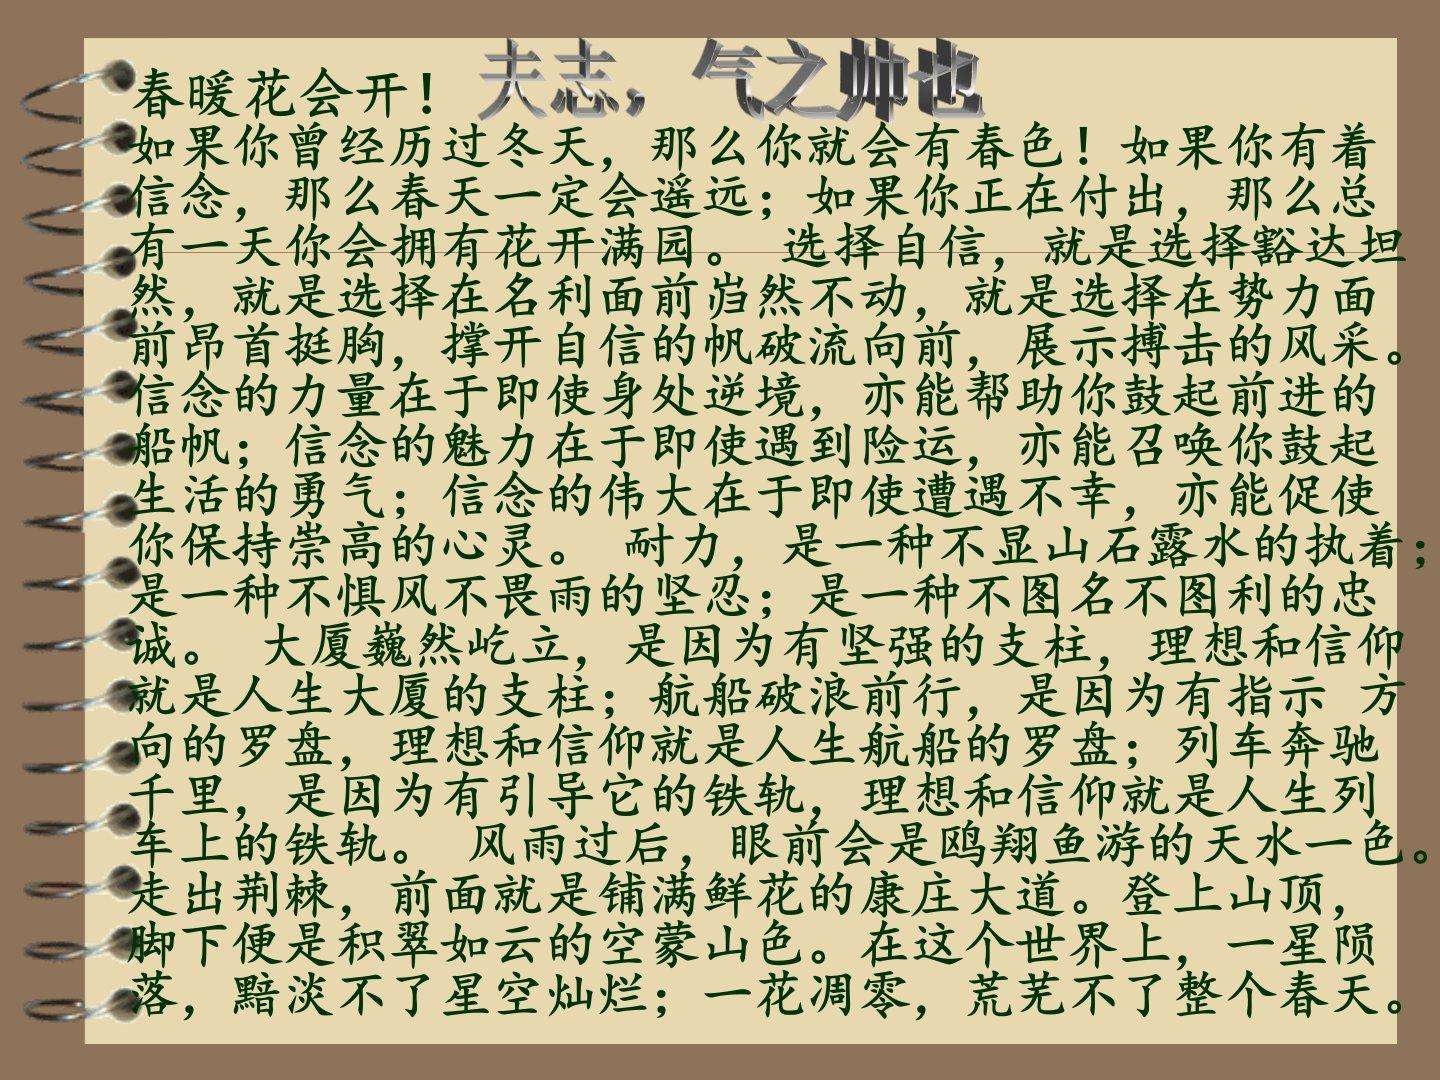 夫志，气之帅也
春暖花会开！
如果你曾经历过冬天，那么你就会有春色！如果你有着
信念，那么春天一定会遥远；如果你正在付出，那么总
有一天你会拥有花开满园。 选择自信，就是选择豁达坦
然，就是选择在名利面前岿然不动，就是选择在势力面
前昂首挺胸，撑开自信的帆破流向前，展示搏击的风采。
信念的力量在于即使身处逆境，亦能帮助你鼓起前进的
船帆；信念的魅力在于即使遇到险运，亦能召唤你鼓起
生活的勇气；信念的伟大在于即使遭遇不幸，亦能促使
你保持崇高的心灵。 耐力，是一种不显山石露水的执着；
是一种不惧风不畏雨的坚忍；是一种不图名不图利的忠
诚。 大厦巍然屹立，是因为有坚强的支柱，理想和信仰
就是人生大厦的支柱；航船破浪前行，是因为有指示 方
向的罗盘，理想和信仰就是人生航船的罗盘；列车奔驰
千里，是因为有引导它的铁轨，理想和信仰就是人生列
车上的铁轨。 风雨过后，眼前会是鸥翔鱼游的天水一色。
走出荆棘，前面就是铺满鲜花的康庄大道。登上山顶，
脚下便是积翠如云的空蒙山色。在这个世界上，一星陨
落，黯淡不了星空灿烂；一花凋零，荒芜不了整个春天。